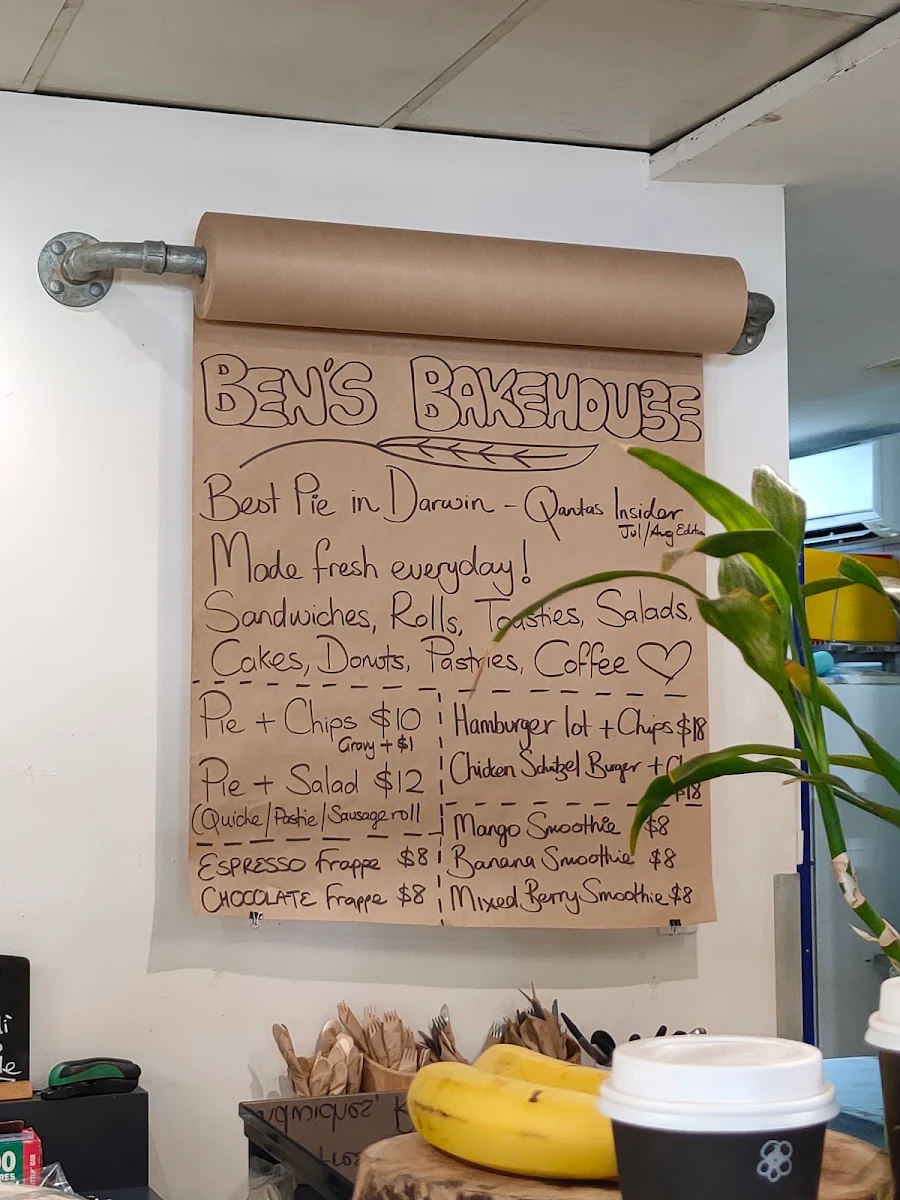 BEN'S BAKEHOUSE
Best Pie in Darwin - Qantas Insider
Jul/Aug Edition
Made fresh everyday!
Sandwiches, Rolls, Toasties, Salads,
Cakes, Donuts, Pastries, Coffee ♡
Pie + Chips $10
Gravy + $1
Pie + Salad $12
(Quiche/Pastie/Sausage roll
ESPRESSO Frappe $8
CHOCOLATE Frappe $8
Hamburger lot + Chips $18
Chicken Schitzel Burger +
$18
Mango Smoothie $8
Banana Smoothie $8
Mixed Berry Smoothie $8